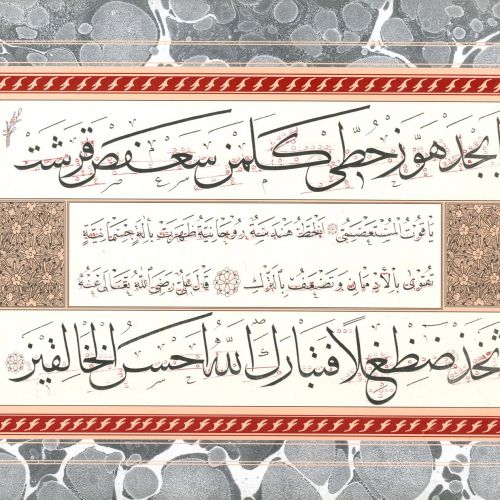 ابجد هوز حطي كلمن سعفص قرشت
ياقوت المستعصمي الخط هندسة روحانية ظهرت بآلة جسمانية
تقوى بالإدمان وتضعف بالترك قال علي رضي الله تعالى عنه
ثخذ ضظغلا فتبارك الله احسن الخالقين